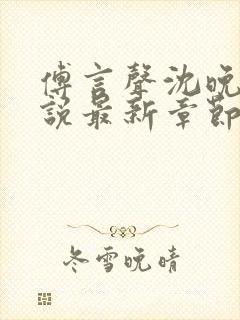 傅言聲沈晚
說最新章節
冬雪晚晴